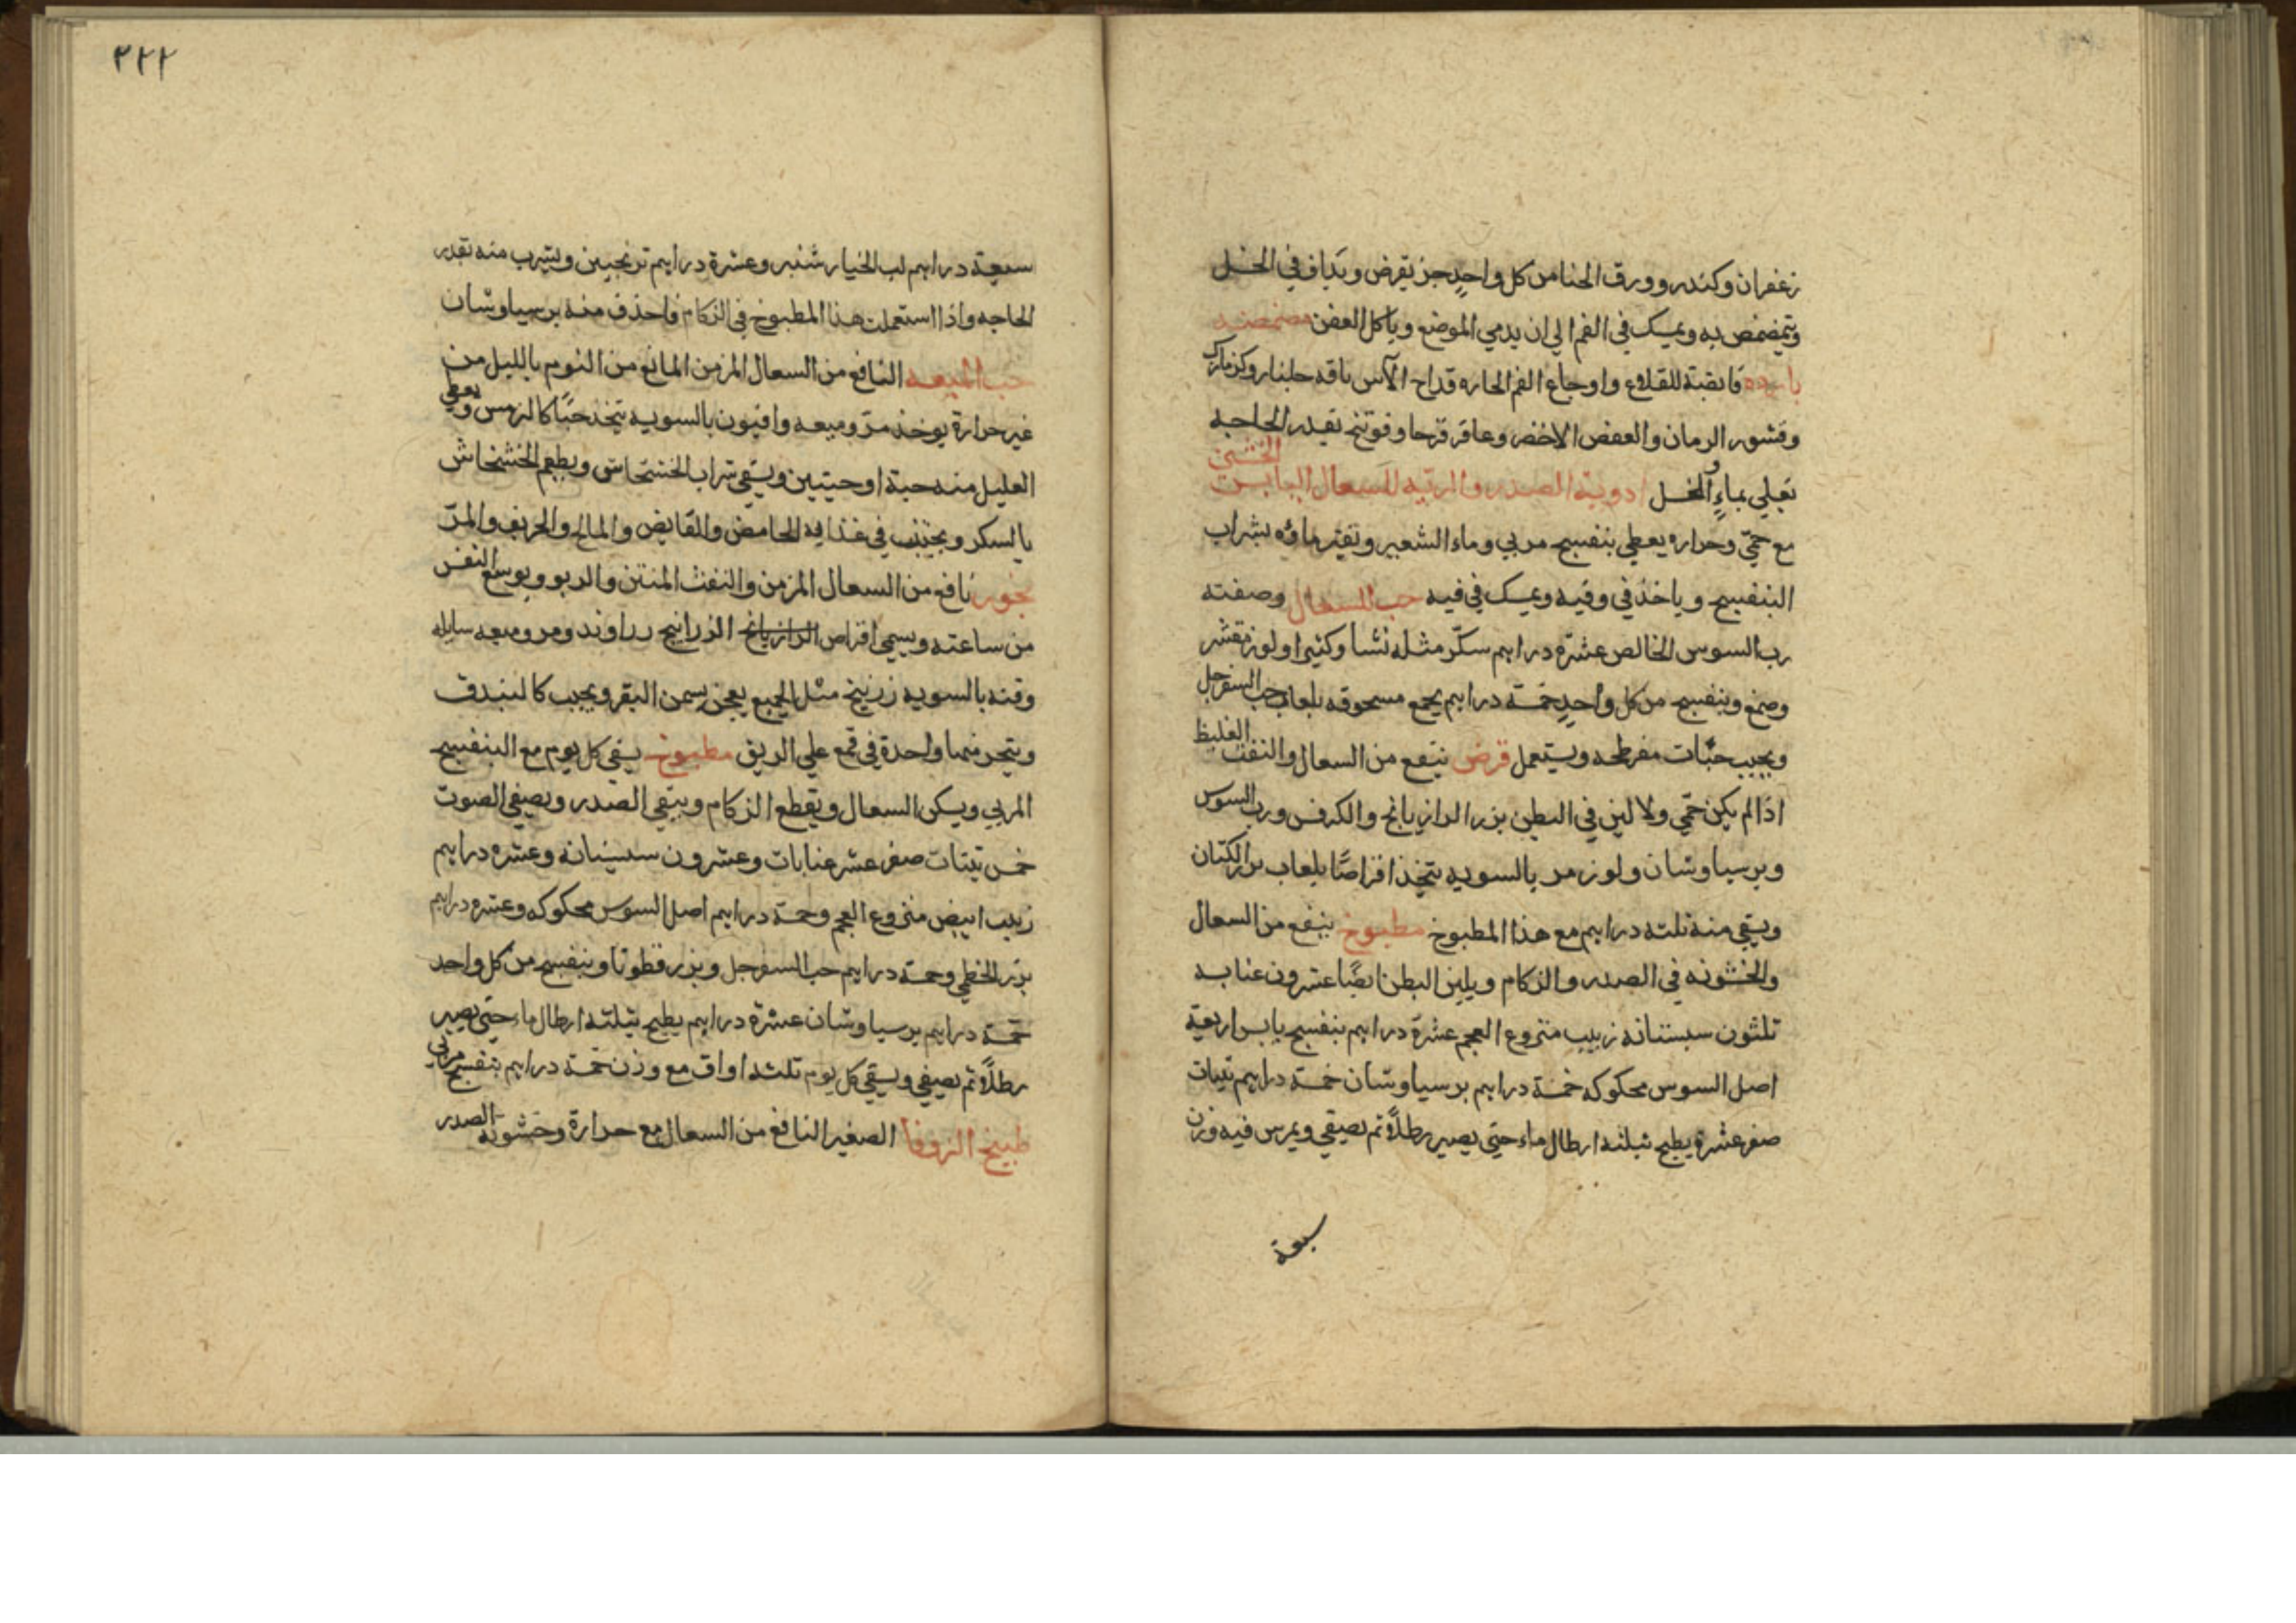 زعفران وكندر وورق الحنا من كل واحدٍ جز يقرض ويداف في الخل
ويتمضمض به ويمسك في الفم الي ان يدمي الموضع وياكل العفن مضمضه
بارده قابضة للقلاع واوجاع الفم الحاره قداح الآس باقه جلنار وكزمازك
وقشور الرمان والعفص الاخضر وعاقر قرحا وفوتنج بقدر الحاجه
تغلي بماءٍ والخل ادوية الصدر والرئه للسعال اليابس الخشن
مع حميّ وحراره يعطي بنفسج مربي وماء الشعير وتفتر ماؤه بشراب
البنفسج وياخذ في وفيه ويمسك في فيه حب للسعال وصفته
رب السوس الخالص عشرة دراهم سكّر مثله نشا وكثيرا ولوز مقشر
وصمغ وبنفسج من كل واحدٍ خمسة دراهم يجمع مسحوقه بلعاب حب السفرجل
ويحبب حبّات مفرطحه ويستعمل قرص ينفع من السعال والنفث الغليظ
اذا لم يكن حمّي ولا لين في البطن بزر الرازيانج والكرفس ورب السوس
وبرسياوشان ولوز مر بالسويه يتخذ اقراصًا بلعاب بزر الكتان
ويسقي منه ثلثه دراهم مع هذا المطبوخ مطبوخ ينفع من السعال
والخشونه في الصدر والزكام ويلين البطن ايضًا عشرون عنابه
ثلثون سبستانه زبيب منزوع العجم عشرة دراهم بنفسج يابس اربعة
اصل السوس محكوكه خمسة دراهم برسياوشان خمسة دراهم تينات
صفر عشرة يطبخ بثلثه ارطال ماء حتي يصير رطلاً ثم يصفي ويمرس فيه وزن
سبعة
٢٢٢
سبعة دراهم لب الخيار شنبر وعشرة دراهم ترنجبين ويشرب منه بقدر
الحاجه واذا استعملت هذا المطبوخ في الزكام فاحذف منه برسياوشان
حب الميعه النافع من السعال المزمن المانع من النوم بالليل من
غير حرارة يوخذ مرّ وميعه وافيون بالسويه يتخذ حبًا كالترمس ويعطي
العليل منه حبة او حبتين ويسقي شراب الخشخاش ويطعم الخشخاش
بالسكر ويجتنب في غذايه الحامض والقابض والمالح والحريف والمرّ
بخور نافع من السعال المزمن والنفث المنتن والربو ويوسع النفس
من ساعته ويسمي اقراص الرازيانج الزرانيج زراوند ومر وميعه سايله
وقنه بالسويه زرنيخ مثل الجميع يعجن بسمن البقر ويحبب كالبندق
ويتبخر منها واحدة في قمع علي الريق مطبوخ يسقي كل يوم مع البنفسج
المربي ويسكن السعال ويقطع الزكام وينقي الصدر ويصفي الصوت
خمس تينات صفر عشر عنابات وعشرون سبستانه وعشره دراهم
زبيب ابيض منزوع العجم وخمسة دراهم اصل السوس محكوكه وعشره دراهم
بزر الخطمي وخمسة دراهم حب السفرجل وبزر قطونا وبنفسج من كل واحد
خمسة دراهم برسياوشان عشرة دراهم يطبخ بثلثه ارطال ماء حتي يصير
رطلاً ثم يصفي ويسقي كل يوم ثلثه اواق مع وزن خمسة دراهم بنفسج مربي
طبيخ الزوفا الصغير النافع من السعال مع حرارة وخشونه الصدر